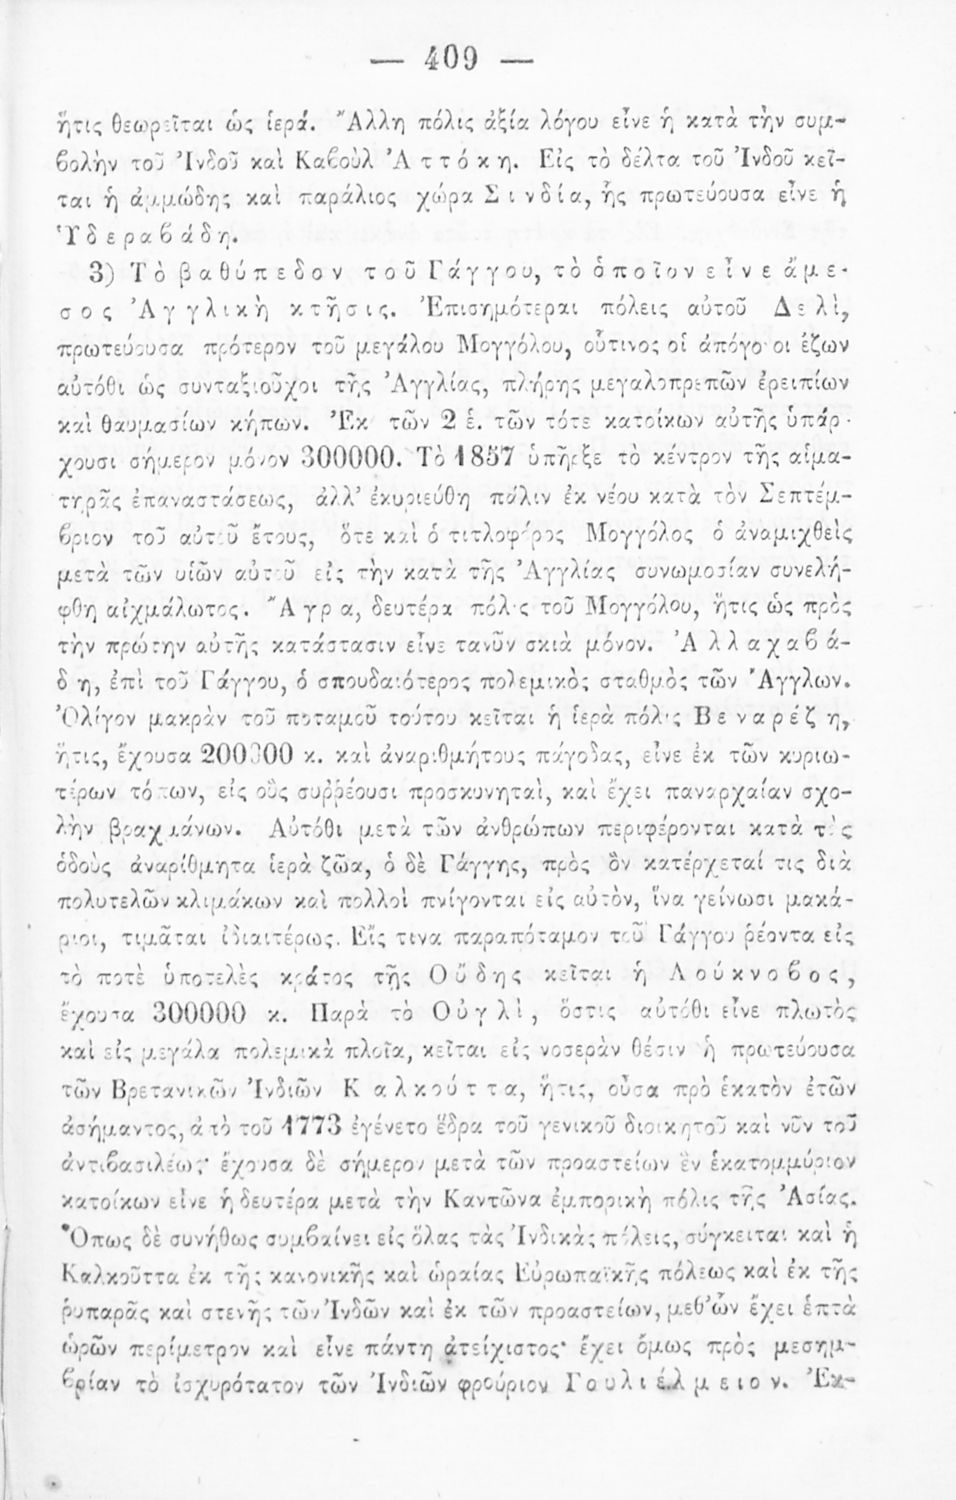 — 409 —
ἥτις θεωρεῖται ὡς ἱερά. Ἄλλη πόλις ἀξία λόγου εἶνε ἡ κατὰ τὴν συμ-
βολὴν τοῦ Ἰνδοῦ καὶ Καβοὺλ Ἀττόκη. Εἰς τὸ δέλτα τοῦ Ἰνδοῦ κεῖ-
ται ἡ ἀμμώδης καὶ παράλιος χώρα Σινδία, ἧς πρωτεύουσα εἶνε ἡ
Ὑδεραβάδη.
3) Τὸ βαθύπεδον τοῦ Γάγγου, τὸ ὁποῖον εἶνε ἄμε-
σος Ἀγγλικὴ κτῆσις. Ἐπισημότεραι πόλεις αὐτοῦ Δελὶ,
πρωτεύουσα πρότερον τοῦ μεγάλου Μογγόλου, οὗτινος οἱ ἀπόγονοι ἔζων
αὐτόθι ὡς συνταξιοῦχοι τῆς Ἀγγλίας, πλήρης μεγαλοπρεπῶν ἐρειπίων
καὶ θαυμασίων κήπων. Ἐκ τῶν 2 ἑ. τῶν τότε κατοίκων αὐτῆς ὑπάρ-
χουσι σήμερον μόνον 300000. Τὸ 1857 ὑπῆρξε τὸ κέντρον τῆς αἱμα-
τηρᾶς ἐπαναστάσεως, ἀλλ' ἐκυριεύθη πάλιν ἐκ νέου κατὰ τὸν Σεπτέμ-
βριον τοῦ αὐτοῦ ἔτους, ὅτε καὶ ὁ τιτλοφόρος Μογγόλος ὁ ἀναμιχθεὶς
μετὰ τῶν υἱῶν αὐτοῦ εἰς τὴν κατὰ τῆς Ἀγγλίας συνωμοσίαν συνελή-
φθη αἰχμάλωτος. Ἄγρα, δευτέρα πόλις τοῦ Μογγόλου, ἥτις ὡς πρὸς
τὴν πρώτην αὐτῆς κατάστασιν εἶνε τανῦν σκιὰ μόνον. Ἀλλαχαβά-
δη, ἐπὶ τοῦ Γάγγου, ὁ σπουδαιότερος πολεμικὸς σταθμὸς τῶν Ἄγγλων.
Ὀλίγον μακρὰν τοῦ ποταμοῦ τούτου κεῖται ἡ ἱερὰ πόλις Βεναρέζη,
ἥτις, ἔχουσα 200000 κ. καὶ ἀναριθμήτους παγόδας, εἶνε ἐκ τῶν κυριω-
τέρων τόπων, εἰς οὓς συῤῥέουσι προσκυνηταὶ, καὶ ἔχει παναρχαίαν σχο-
λὴν βραχμάνων. Αὐτόθι μετὰ τῶν ἀνθρώπων περιφέρονται κατὰ τὰς
ὁδοὺς ἀναρίθμητα ἱερὰ ζῶα, ὁ δὲ Γάγγης, πρὸς ὃν κατέρχεταί τις διὰ
πολυτελῶν κλιμάκων καὶ πολλοὶ πνίγονται εἰς αὐτὸν, ἵνα γείνωσι μακά-
ριοι, τιμᾶται ἰδιαιτέρως. Εἴς τινα παραπόταμον τοῦ Γάγγου ῥέοντα εἰς
τὸ ποτὲ ὑποτελὲς κράτος τῆς Οὔδης κεῖται ἡ Λούκνοβος,
ἔχουσα 300000 κ. Παρὰ τὸ Οὐγλὶ, ὅστις αὐτόθι εἶνε πλωτὸς
καὶ εἰς μεγάλα πολεμικὰ πλοῖα, κεῖται εἰς νοσερὰν θέσιν ἡ πρωτεύουσα
τῶν Βρετανικῶν Ἰνδιῶν Καλκούττα, ἥτις, οὖσα πρὸ ἑκατὸν ἐτῶν
ἀσήμαντος, ἀπὸ τοῦ 1773 ἐγένετο ἕδρα τοῦ γενικοῦ διοικητοῦ καὶ νῦν τοῦ
ἀντιβασιλέως· ἔχουσα δὲ σήμερον μετὰ τῶν προαστείων ἓν ἑκατομμύριον
κατοίκων εἶνε ἡ δευτέρα μετὰ τὴν Καντῶνα ἐμπορικὴ πόλις τῆς Ἀσίας.
Ὅπως δὲ συνήθως συμβαίνει εἰς ὅλας τὰς Ἰνδικὰς πόλεις, σύγκειται καὶ ἡ
Καλκοῦττα ἐκ τῆς κανονικῆς καὶ ὡραίας Εὐρωπαϊκῆς πόλεως καὶ ἐκ τῆς
ῥυπαρᾶς καὶ στενῆς τῶν Ἰνδῶν καὶ ἐκ τῶν προαστείων, μεθ' ὧν ἔχει ἑπτὰ
ὡρῶν περίμετρον καὶ εἶνε πάντη ἀτείχιστος· ἔχει ὅμως πρὸς μεσημ-
βρίαν τὸ ἰσχυρότατον τῶν Ἰνδιῶν φρούριον Γουλιέλμειον. Ἐκ-